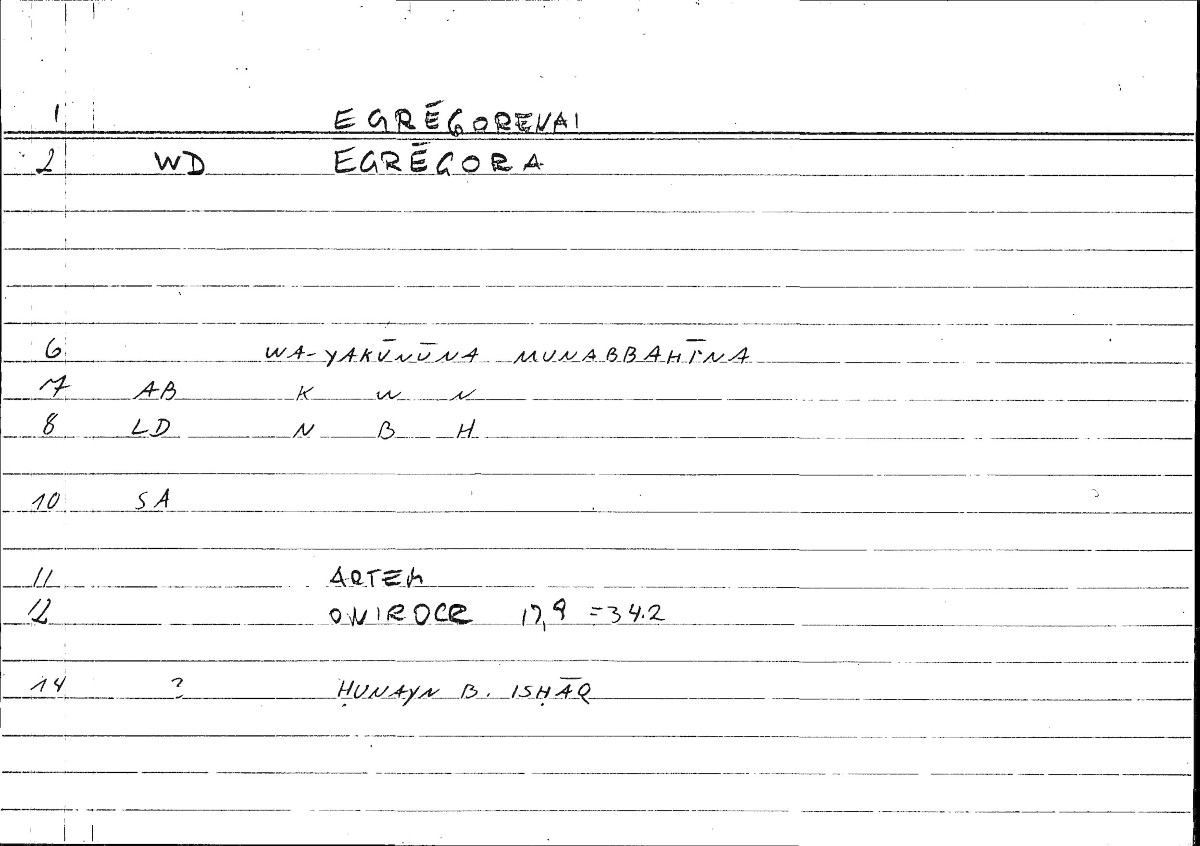 1 EGRĒGORENAI
2 WD EGRĒGORA
6 WA-YAKŪNŪNA MUNABBAHĪNA
7 AB K W N
8 LD N B H
10 SA
11 ARTEM
12 ONIROCR 17,9 =34.2
14 ? ḤUNAYN B. ISḤĀQ